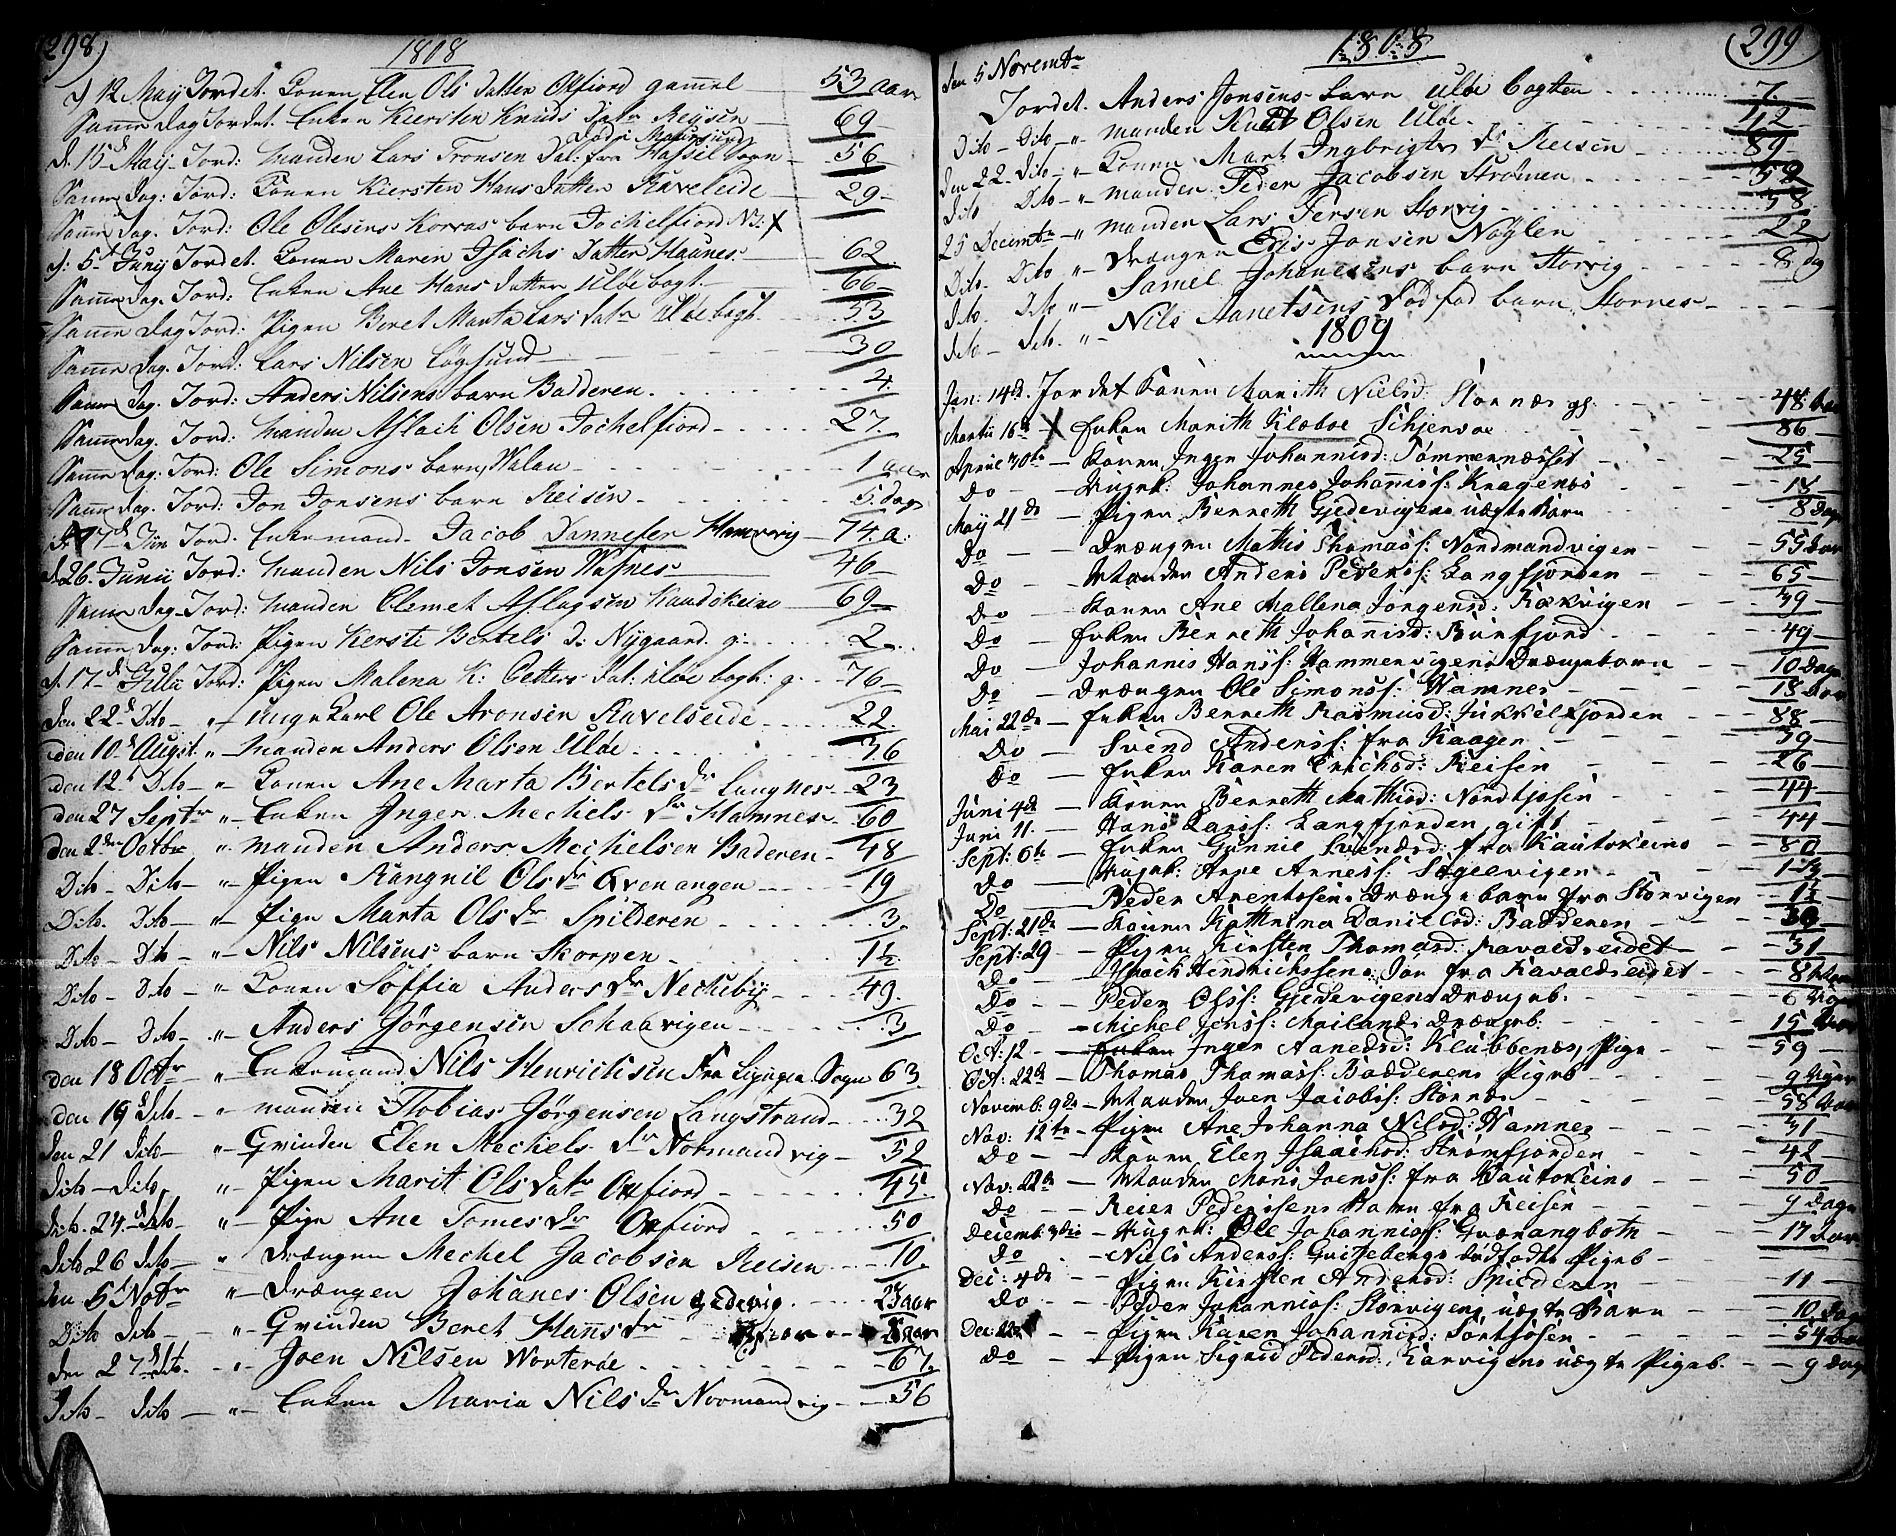 298)
1808
12 Maij Jordet. Konen Elen Ols Datter Oxfiord gammel 53 aar
Samme Dag Jordet. Enken Kiersten Knuds Reijsen 69
Død i Maursund
d. 15 Maij Jord: Manden Lars Tronsen Dal: fra Hassel Sogn 56
Samme Dag: Jord: Konen Kiersten Hans Datter Raveleide 29
Samme Dag. Jord: Ole Olesens Korvas barn Jochelfiord
d: 5 Junij Jordet. Konen Maren Isachs Datter Haunes 62
Samme Dag. Jord: Enken Ane Hans Datter Uløe bogt. 66
Samme Dag Jord: Pigen Beret Marta Lars Uløebogt 53
Samme Dag. Jord: Lars Nilsen Løgsund 30
Samme Dag. Jord: Anders Nilsens barn Badderen. 4.
Samme dag. Jord: Manden Aslach Olsen Jochelfiord 27
Samme Dag: Jord: Ole Simons barn Walan 1 aar
Samme Dag. Jord: Jon Jonsens barn Reisen 5. dage
17 Jun Jord. Enkemand Jacob Dannefer Hamvvig 74. a.
d 26. Junii Jord: Manden Nils Jonsen Wasnes 46
Samme Dag. Jord: Manden Clemet Aslagsen Kaudokeino 69
Samme Dag: Jord: Pigen Kersti Bertels d. Nijgaard. g: 2
d. 17 Julii Jord: Pigen Malena K: Petters Dat: Uløe bogt: g. 76
den 22 Dito " Unge Karl Ole Aronsen Ravelseide 22
den 10 Augst. " Manden Anders Olsen Uløe 36
den 12 Dito " Konen Ane Marta Bertels dr Langnes 23
den 27 Septr " Enken Inger Mechels dr Hamnes 60
den 2 Octbr " Manden Anders Mechelsen Baderen 48
Dito Dito " Pigen Rangnil Ols dr Qvenangen 19
Dito. Dito " Pige Marta Ols dr Spilderen 3.
Dito Dito " Nils Nilsens barn Skorpen 1½
Dito Dito " Konen Soffia Anders dr Nechebij 49.
Dito Dito " Anders Jørgensen Schaarvigen 3
den 18 Octr " Enkemand Nils Henrichsen Fra Ljngen Sogn 63
den 19 Dito " Manden Tobias Jørgensen Langstrand 32
den 21 Dito " Qvinden Elen Mechels dr Normandvig 52
Dito Dito " Pigen Marit Ols datr Oxfiord 45
Dito. 24. Dito " Pige Ane Tomes dr Oxfiord 50
Dito 26 Dito " Drængen Mechel Jacobsen Reisen 10.
den 6 Novr " Drængen Johanes Olsen Gedevig 23 aar
Dito Dito " Qvinden Beret Hans dr aar
den 27 Dito. " Joen Nilsen Worterøe 67
Dito Dito " Enken Maria Nils dr Normandvig 56
299
1808
den 5 Novembr
Jordet. Anders Jonsens barn Uløe bogten 7.
Dito Dito " Manden Knut Olsen Uløe 42
den 22 Dito " Konen Mart Ingbrigts dr Reisen 89
Dito Dito " Manden Peder Jacobsen Strømen 52
25 Decembr " Manden Lars Persen Storvig 58
Dito Dito " Drængen Edis Jonsen Nøylen 22
Dito Dito " Samel Johanesens barn Storvig 8 dg
Dito Dito " Nils Aanetsens død fød barn Stornes
1809
Jan: 14de. Jordet Konen Marith Nielsd: Stornæs gl. 48
Martii 16de Enken Marith Klæboe Schjervøe 86
Aprile 30te Konen Inger Johannisd: Tømmernæsset 25
Do Ungk: Johannes Johaniss: Kragenes 14
Maij 21de Pigen Berreth Gjedevigens uægte Barn 8 Dage
Do Drængen Mathis Thomass: Nordmandvigen 55 Aar
Do Manden Anders Peders: Langfjorden 65
Do Konen Ane Mallena Jørgensd: Rækvigen 39
Do Enken Berreth Johannisd: Burfjord 49
Do Johannis Hanss: Hammervigens Drængebarn 10 Dage
Do Drængen Ole Simonss: Hamnes 18 Aar
Mai 22de Enken Berreth Rasmusd: Jukkelfjorden 88
Do Svend Anderss: fra Kaagen 39
Do Enken Karen Erichsd: Reisen 26
Juni 4de Konen Berreth Mathisd: Nordkjosen 44
Juni 11. Hans Larss: Langfjorden, gift 44
Sept: 6te Enken Gunnil Svendsd: fra Kautokeino 80
Do Ungk: Arne Arness: Søgelvigen
Do Peder Arentssens Drænge barn fra Storvigen 1½
Sept: 21de Konen Kathrina Danielsd: Badderen 38
Sept: 29 Pigen Kirsten Thomasd: Ravaldseidet 31
Do Isaack Hendrichssens Søn fra Ravaldseidet 8
Do Peder Olss: Gjedevigens Drængeb. 6 Uger
Do Michel Jenss: Mailands Drængeb. 15
Oct: 12 Inger Aanedsd: Klubbenæs, Pige 59
Oct: 22de Thomas Thomass: Badderens Pigeb 9 Uger
Novemb: 9de Manden Joen Jacobss: Stornæs 58 Aar
Nov: 12te Pigen Ane Johanna Nilsd: Hamnes 31
Do Konen Elen Isaachsd: Strømfjorden 42
Nov: 22de Manden Mons Joenss: fra Kautokeino 50
Do Reier Pederssens Barn fra Reisen 9 Dage
Decemb: 3die Ungk: Ole Johanniss: Qvænangbotn 17 Aar
Do Niels Anderss: Qvitebergs dødfødte Pigeb
Dec: 4de Pigen Kirsten Andersd: Spilderen 11
Do Peder Johanniss: Storvigens uægte Barn 10 Dage
Dec: 22 Pigen Karen Johannisd: Sørkjosen 54 Aar
Do Pigen Sigrid Pedersd: Karvigens uægte Pigeb. 9 Dage